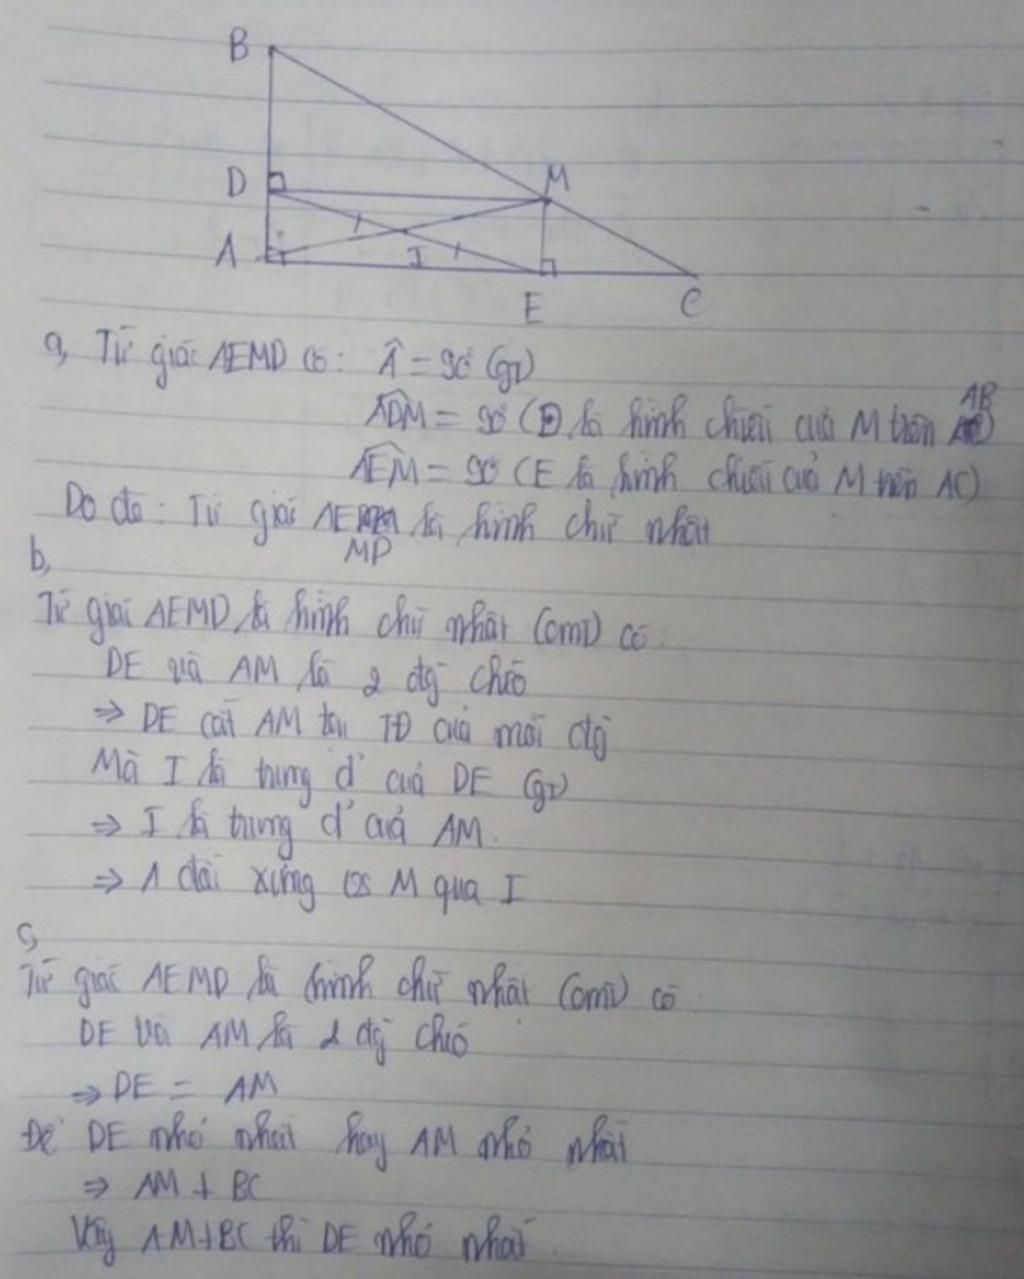 B
D
M
A
I
E
C
a, Tứ giác AEMD có: Â = 90° (gt)
ADM = 90° (D là hình chiếu của M trên AB)
AEM = 90° (E là hình chiếu của M trên AC)
Do đó: Tứ giác AEMD là hình chữ nhật
b,
Tứ giác AEMD là hình chữ nhật (cmt) có:
DE và AM là 2 đg chéo
⇒ DE cắt AM tại TĐ của mỗi đg
Mà I là trung đ' của DE (gt)
⇒ I là trung đ' của AM.
⇒ A đối xứng vs M qua I
c,
Tứ giác AEMD là hình chữ nhật (cmt) có:
DE và AM là 2 đg chéo
⇒ DE = AM
Để DE nhỏ nhất hay AM nhỏ nhất
⇒ AM ⊥ BC
Vậy AM ⊥ BC thì DE nhỏ nhất